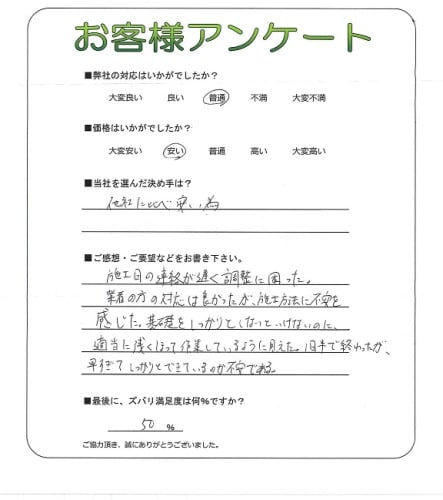 お客様アンケート
■弊社の対応はいかがでしたか？
大変良い 良い 普通 不満 大変不満
■価格はいかがでしたか？
大変安い 安い 普通 高い 大変高い
■当社を選んだ決め手は？
他社にくらべ安い為
■ご感想・ご要望などをお書き下さい。
施工日の連絡が遅く調整に困った。
業者の方の対応は良かったが、施工方法に不安を
感じた。基礎をしっかりとしないといけないのに、
適当に浅くほって作業しているように見えた。1日半で終わったが、
早すぎてしっかりとできているのか不安である。
■最後に、ズバリ満足度は何％ですか？
50 ％
ご協力頂き、誠にありがとうございました。